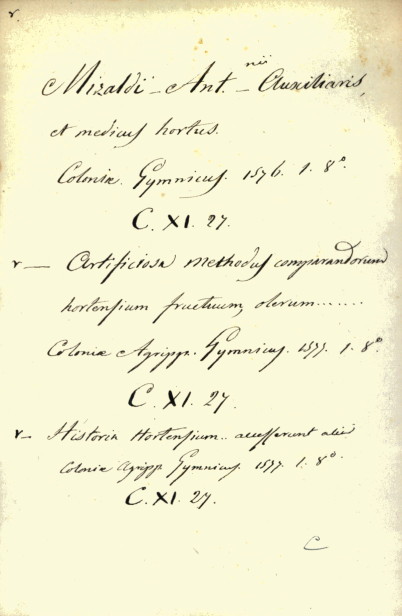 r.
Mizaldi - Ant.nii - Auxiliaris,
et medicus hortus.
Coloniæ. Gymnicus. 1576. 1. 8°.
C. XI. 27.
r — Artificiosa methodus comparandorum
hortensium fructuum, olerum.......
Coloniæ Agripp. Gymnicus. 1577. 1. 8°.
C. XI. 27.
r - Historia Hortensium.. accesserunt alii
Coloniæ Agripp. Gymnicus. 1577. 1. 8°.
C. XI. 27.
C